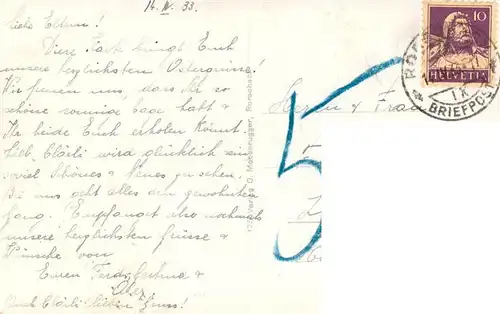 14. IV. 33.
Liebe Eltern!
Diese Karte bringt Euch
unsere herzlichsten Ostergrüsse!
Wir freuen uns, dass Ihr so
schöne sonnige Tage habt &
Ihr beide Euch erholen könnt.
Lieb Clärli wird glücklich sein
soviel Schönes & Neues zu sehen.
Bei uns geht alles den gewohnten
Gang. Empfanget also nochmals
unsere herzlichsten Grüsse &
Wünsche von
Euren
&
Auch Clärli lieben Gruss!
Verlag O. Rorschach
Herrn & Frau
5
10
HELVETIA
BRIEFPOST